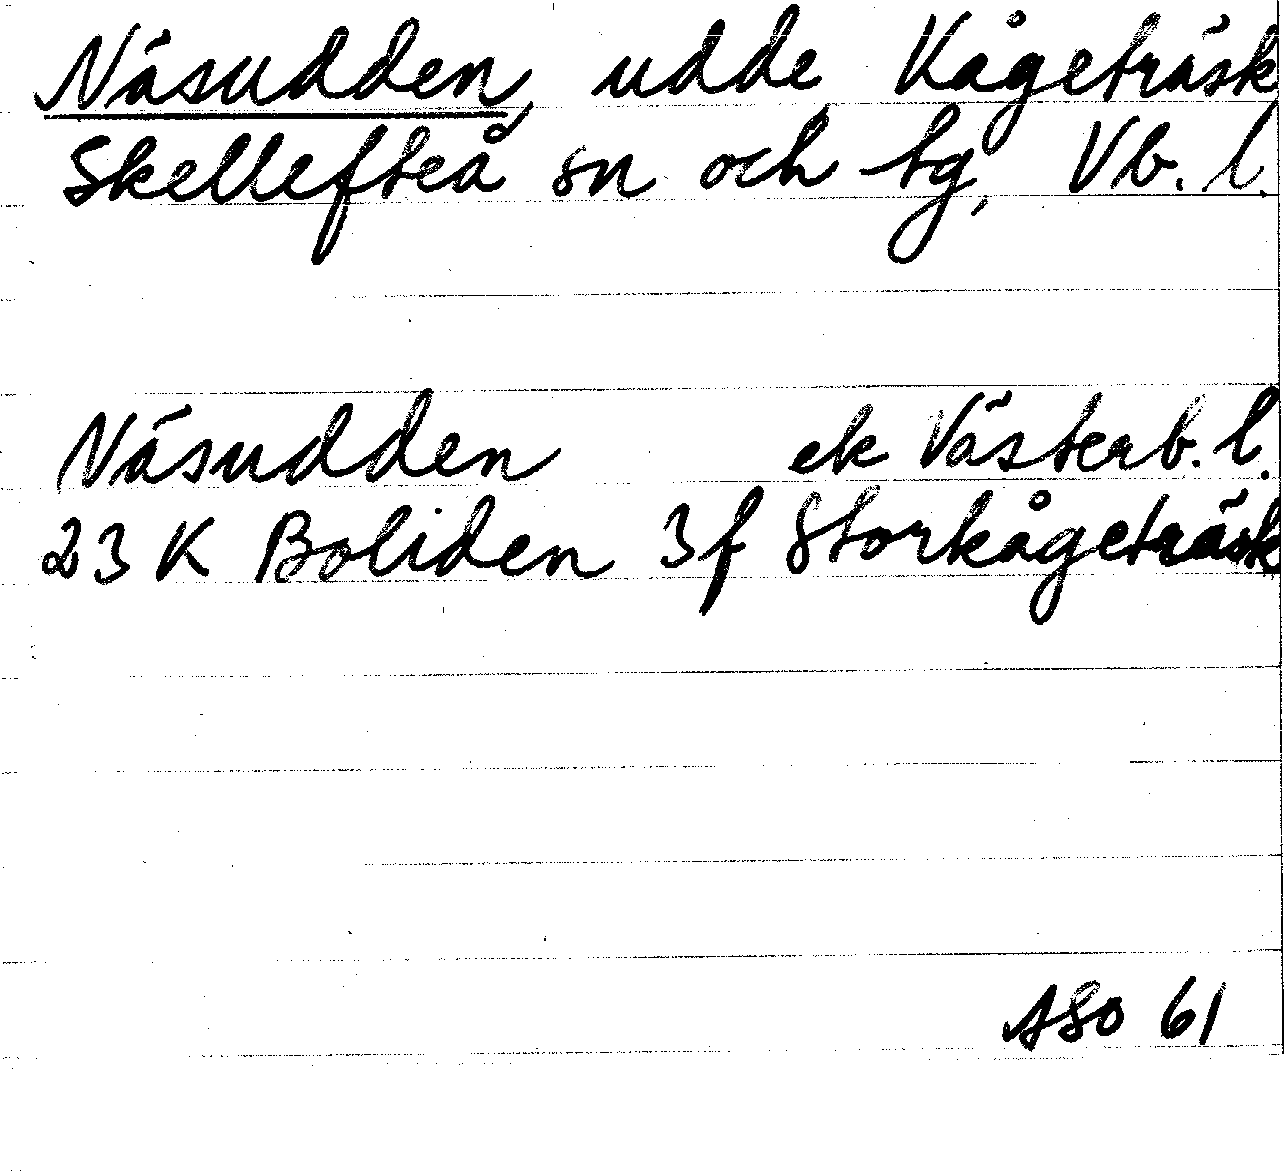 Näsudden, udde, Kågeträsk
Skellefteå sn och tg, Vb. l.
Näsudden ek Västerb. l.
23 K Boliden 3f Storkågeträsk
ASO 61